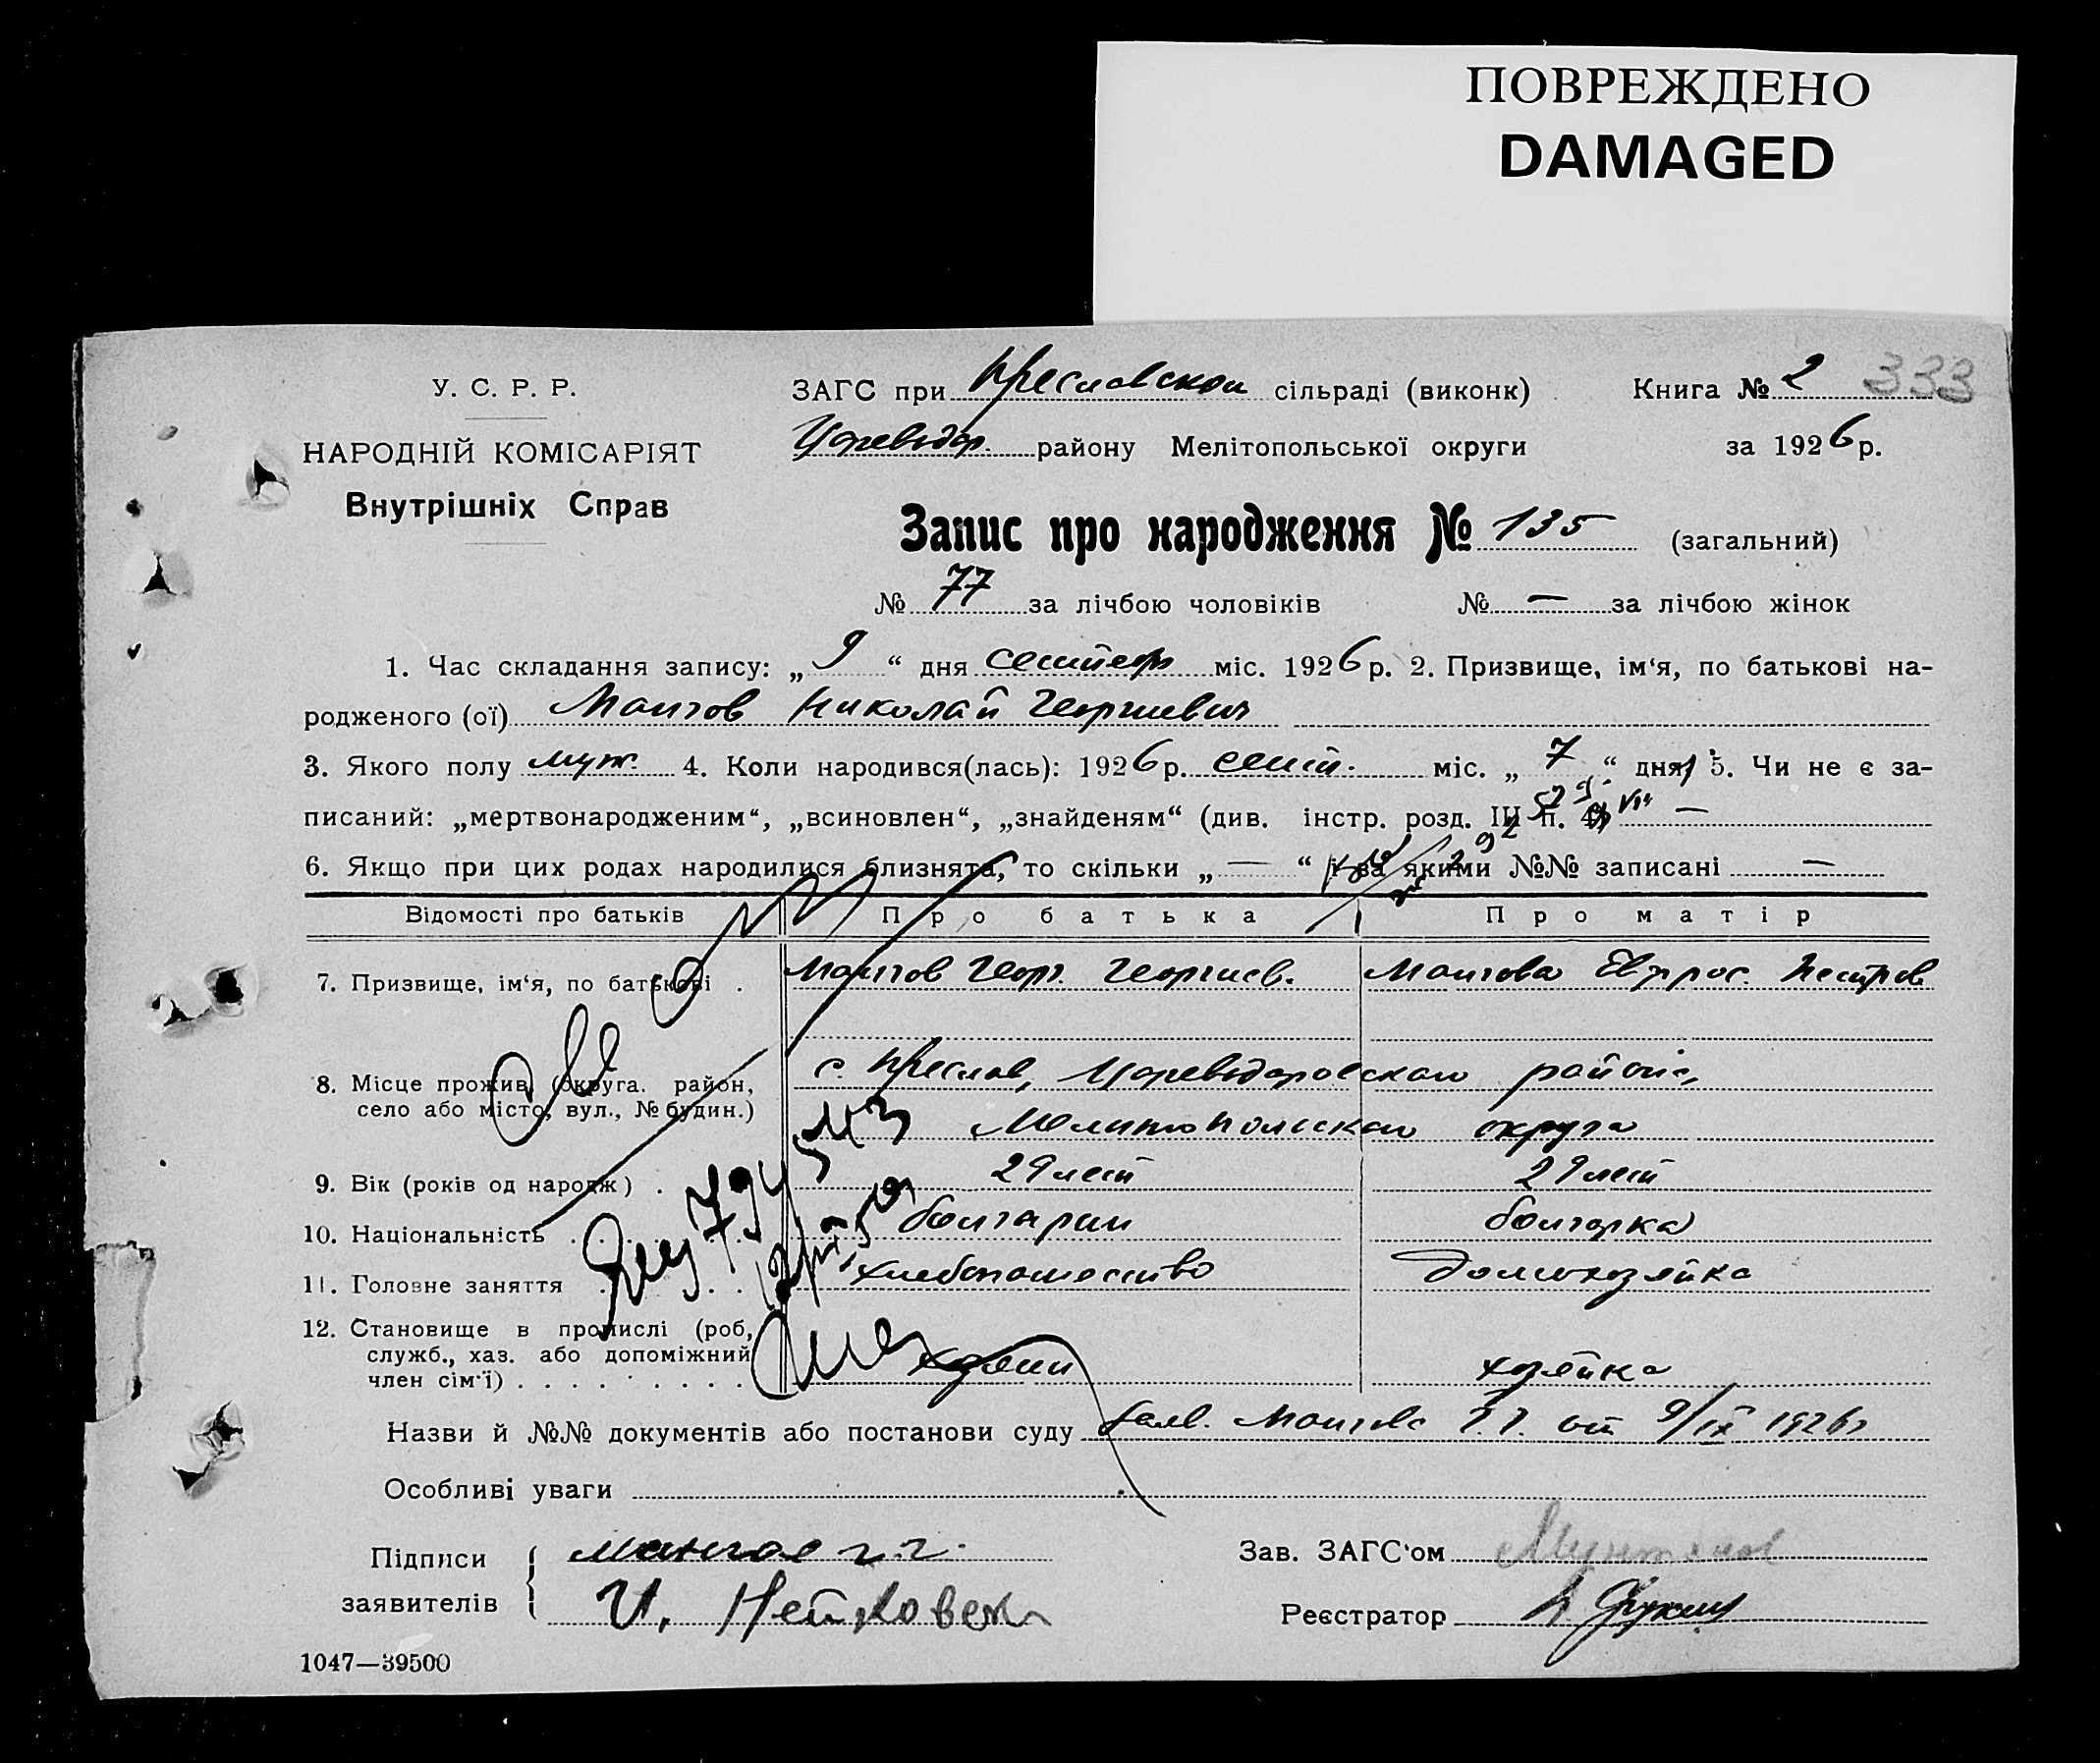 ПОВРЕЖДЕНО
DAMAGED
У. С. Р. Р.
НАРОДНІЙ КОМІСАРІЯТ
Внутрішніх Справ
ЗАГС при Преславской сільраді (виконк)
Цареводар. району Мелітопольської округи
Книга № 2 333
за 1926 р.
Запис про народження № 135 (загальний)
№ 77 за лічбою чоловіків № — за лічбою жінок
1. Час складання запису: „ 9 “ дня сентябр міс. 1926 р. 2. Призвище, ім‘я, по батькові на-
родженого (ої) Мангов Николай Георгиевич
3. Якого полу муж. 4. Коли народився(лась): 1926 р. сент. міс. „ 7 “ дня 5. Чи не є за-
писаний: „мертвонародженим“, „всиновлен“, „знайденям“ (див. інстр. розд. III п. —
6. Якщо при цих родах народилися близнята, то скільки „ — “ і за якими №№ записані —
Відомості про батьків Про батька Про матір
7. Призвище, ім‘я, по батькові . Мангов Георг. Георгиев. Мангова Евфрос. Петров
8. Місце прожив. (округа. район, с. Преслав, Цареводаровского района,
село або місто, вул., № будин.) Мелитопольского округа
9. Вік (років од народж) . 29 лет 29 лет
10. Національність болгарин болгарка
11. Головне заняття хлебопашество домохозяйка
12. Становище в промислі (роб,
служб., хаз. або допоміжний
член сім‘ї) хозяин хозяйка
Назви й №№ документів або постанови суду заяв. Мангова Г.Г. от 9/IX 1926 г
Особливі уваги
Підписи Мангов г.г. Зав. ЗАГС‘ом
заявителів И. Реєстратор
1047—39500